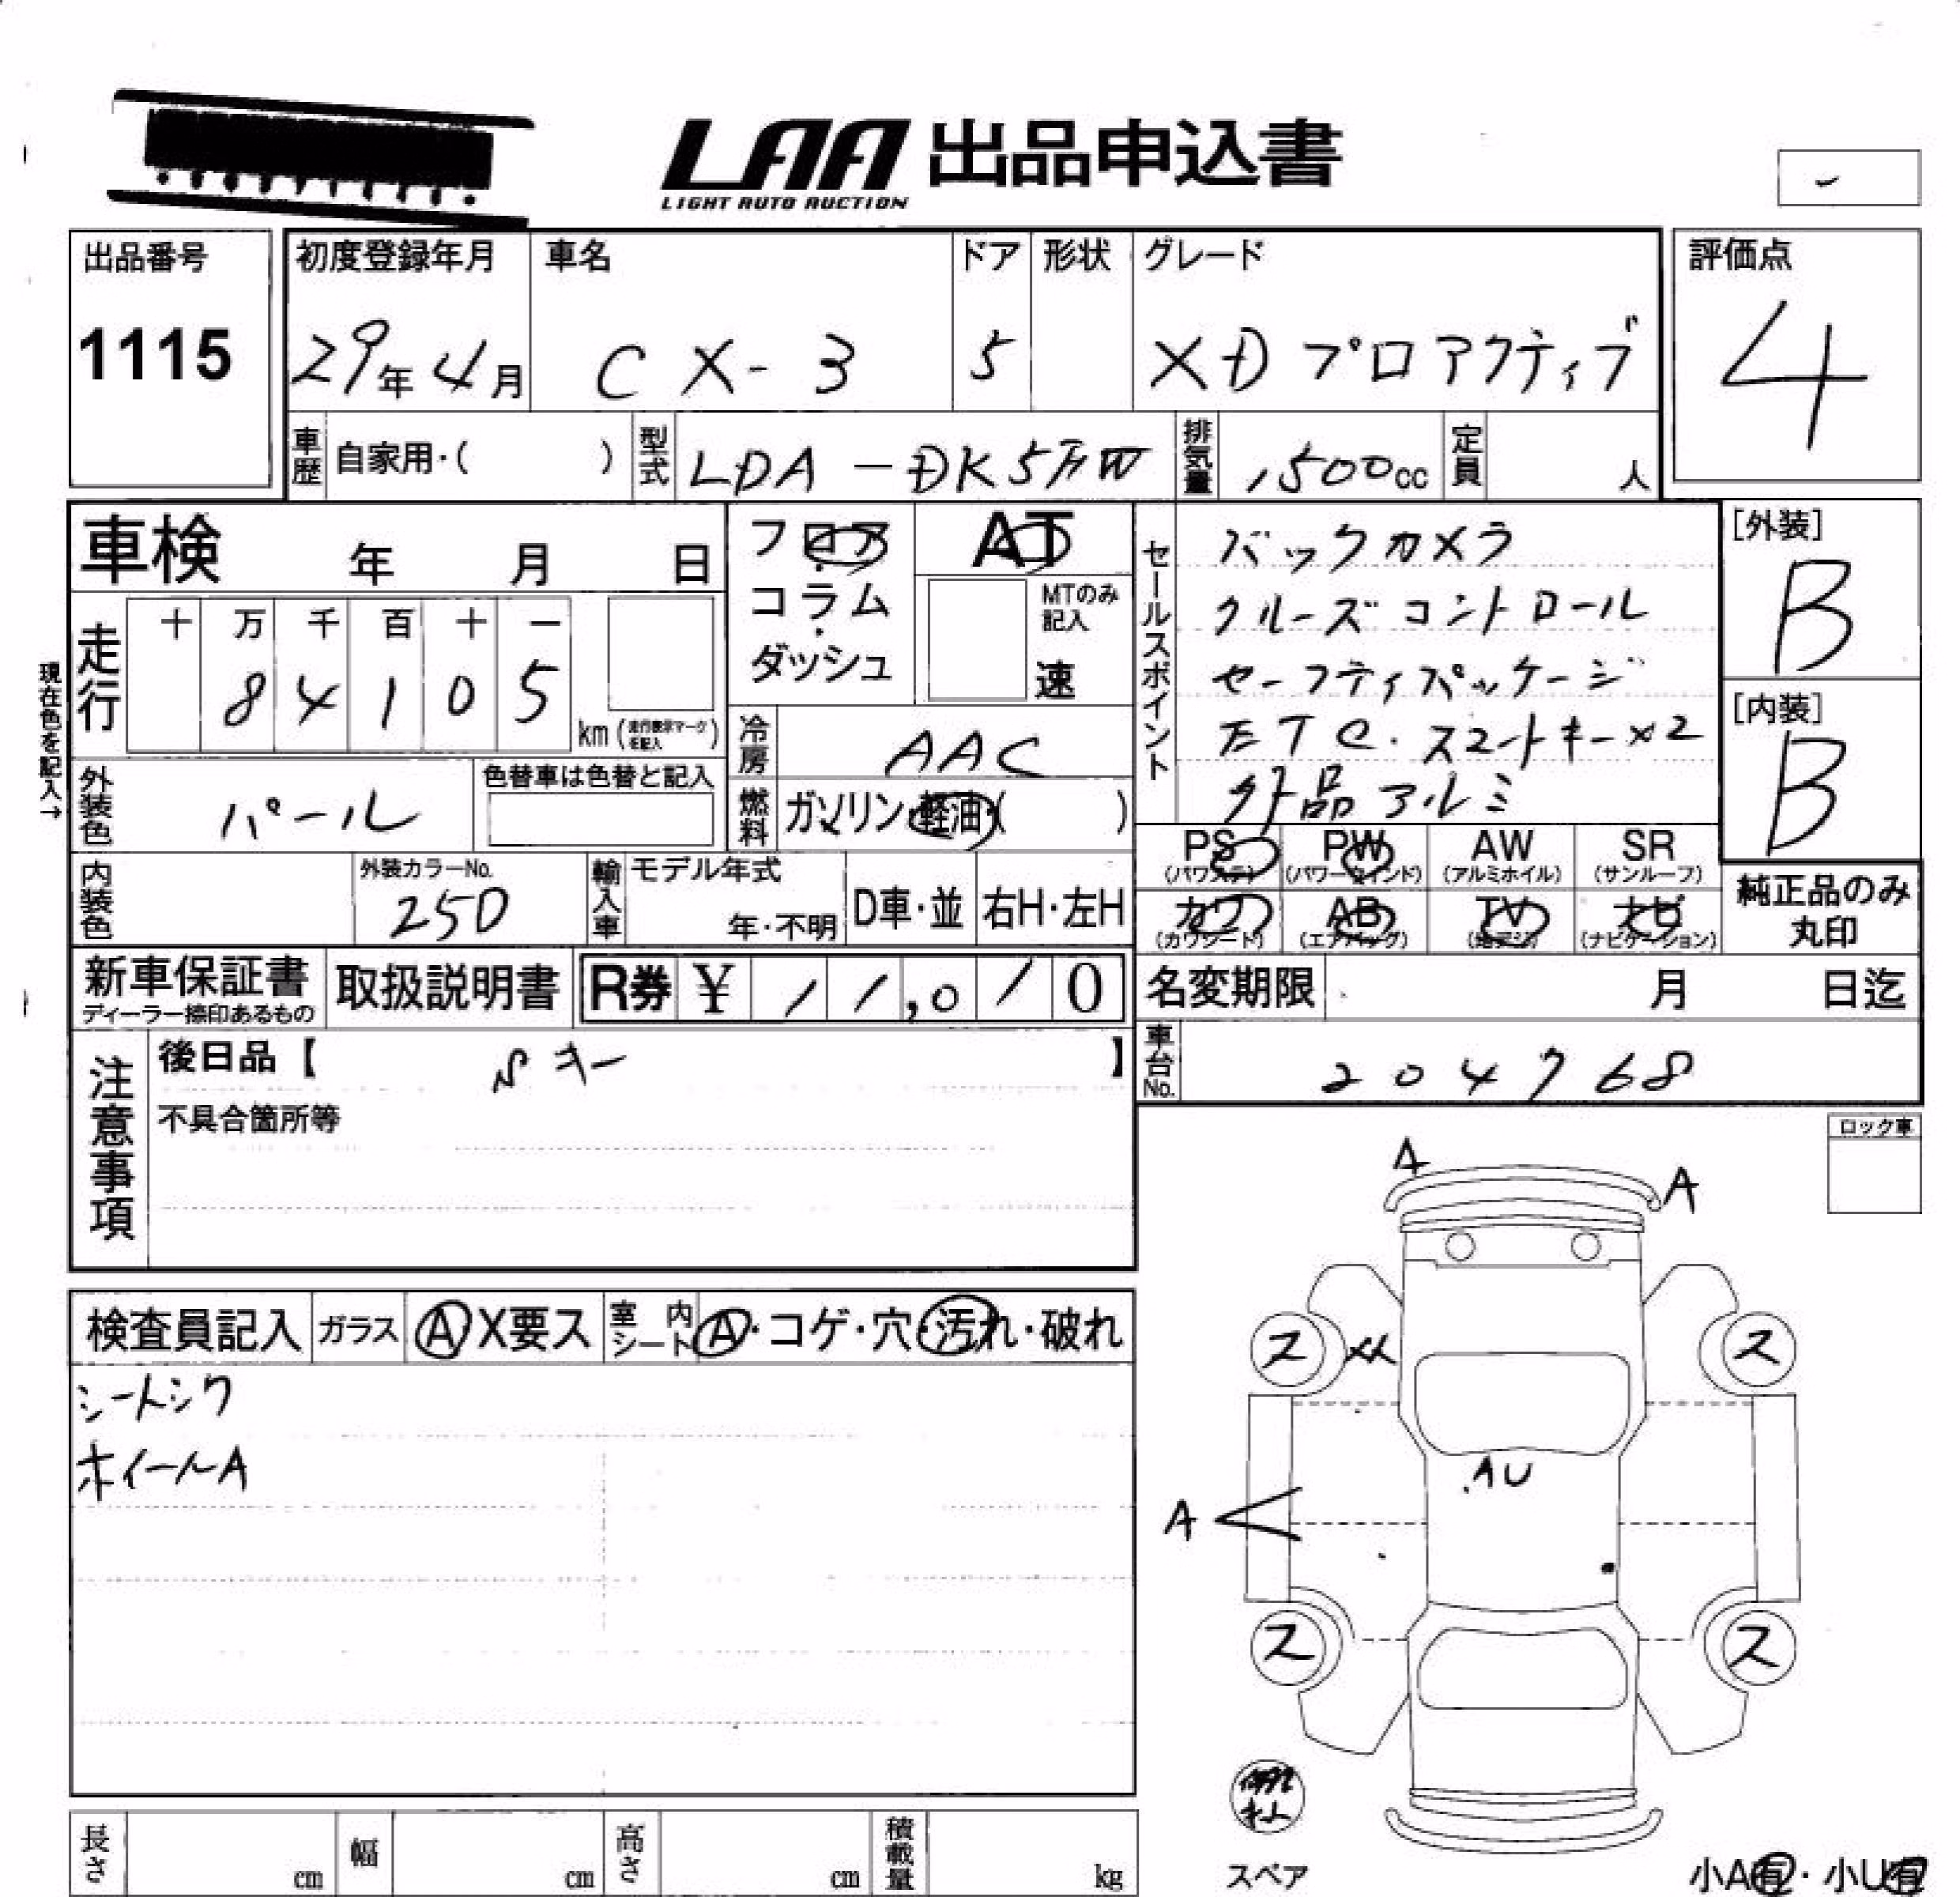 LAA 出品申込書
LIGHT AUTO AUCTION
-
出品番号
1115
初度登録年月
29年4月
車名
CX-3
ドア
5
形状
グレード
XD プロアクティブ
評価点
4
車歴
自家用・( )
型式
LDA-DK5FW
排気量
1500cc
定員
人
車検 年 月 日
フロア・コラム・ダッシュ
AT
MTのみ記入
速
セールスポイント
バックカメラ
クルーズコントロール
セーフティパッケージ
ETC.スマートキー×2
外品アルミ
[外装]
B
[内装]
B
現在色を記入→
走行
十 万 千 百 十 一
8 4 1 0 5
km(走行表示マークを記入)
冷房
AAC
外装色
パール
色替車は色替と記入
燃料
ガソリン・軽油・( )
PS
(パワステ)
PW
(パワーウインド)
AW
(アルミホイル)
SR
(サンルーフ)
カワ
(カワシート)
AB
(エアバッグ)
TV
(地デジ)
ナビ
(ナビゲーション)
純正品のみ
丸印
内装色
外装カラーNo.
25D
輸入車
モデル年式
年・不明
D車・並
右H・左H
新車保証書
ディーラー捺印あるもの
取扱説明書
R券 ¥ 11,010
名変期限 月 日迄
車台No.
204768
注意事項
後日品【 Sキー 】
不具合箇所等
ロック車
A
A
検査員記入
ガラス
A X要ス
室内シート
A・コゲ・穴・汚れ・破れ
シートシワ
ホイールA
ス
XX
ス
AU
A
ス
ス
スペア
長さ cm
幅 cm
高さ cm
積載量 kg
小A有・小U有